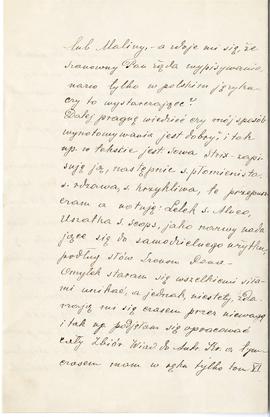 lub Maliny, - a zdaje mi się, że
szanowny Pan żąda wypisywania
nazw tylko w polskim języku
czy to wystarczające?
Dalej pragnę wiedzieć czy mój sposób
wynotowywania jest dobry? i tak
np. w tekście jest Sowa Strix - zapi-
suję ją, następnie s. płomienista
s. rdzawa, s. krzykliwa, to przepusz-
czam a notuję: Lelek s. Aluco,
Uszatka s. scops, jako nazwy nada-
jące się do samodzielnego użytku
podług słów Szanow.
Omyłek staram się wszelkiemi siła-
mi unikać, a jednak niestety zda-
rzają mi się czasem przez nieuwagę
i tak np. podjęłam się opracować
cały Zbiór Wiad. do Antr. Kr. a tym-
czasem mam w ręku tylko tom XI